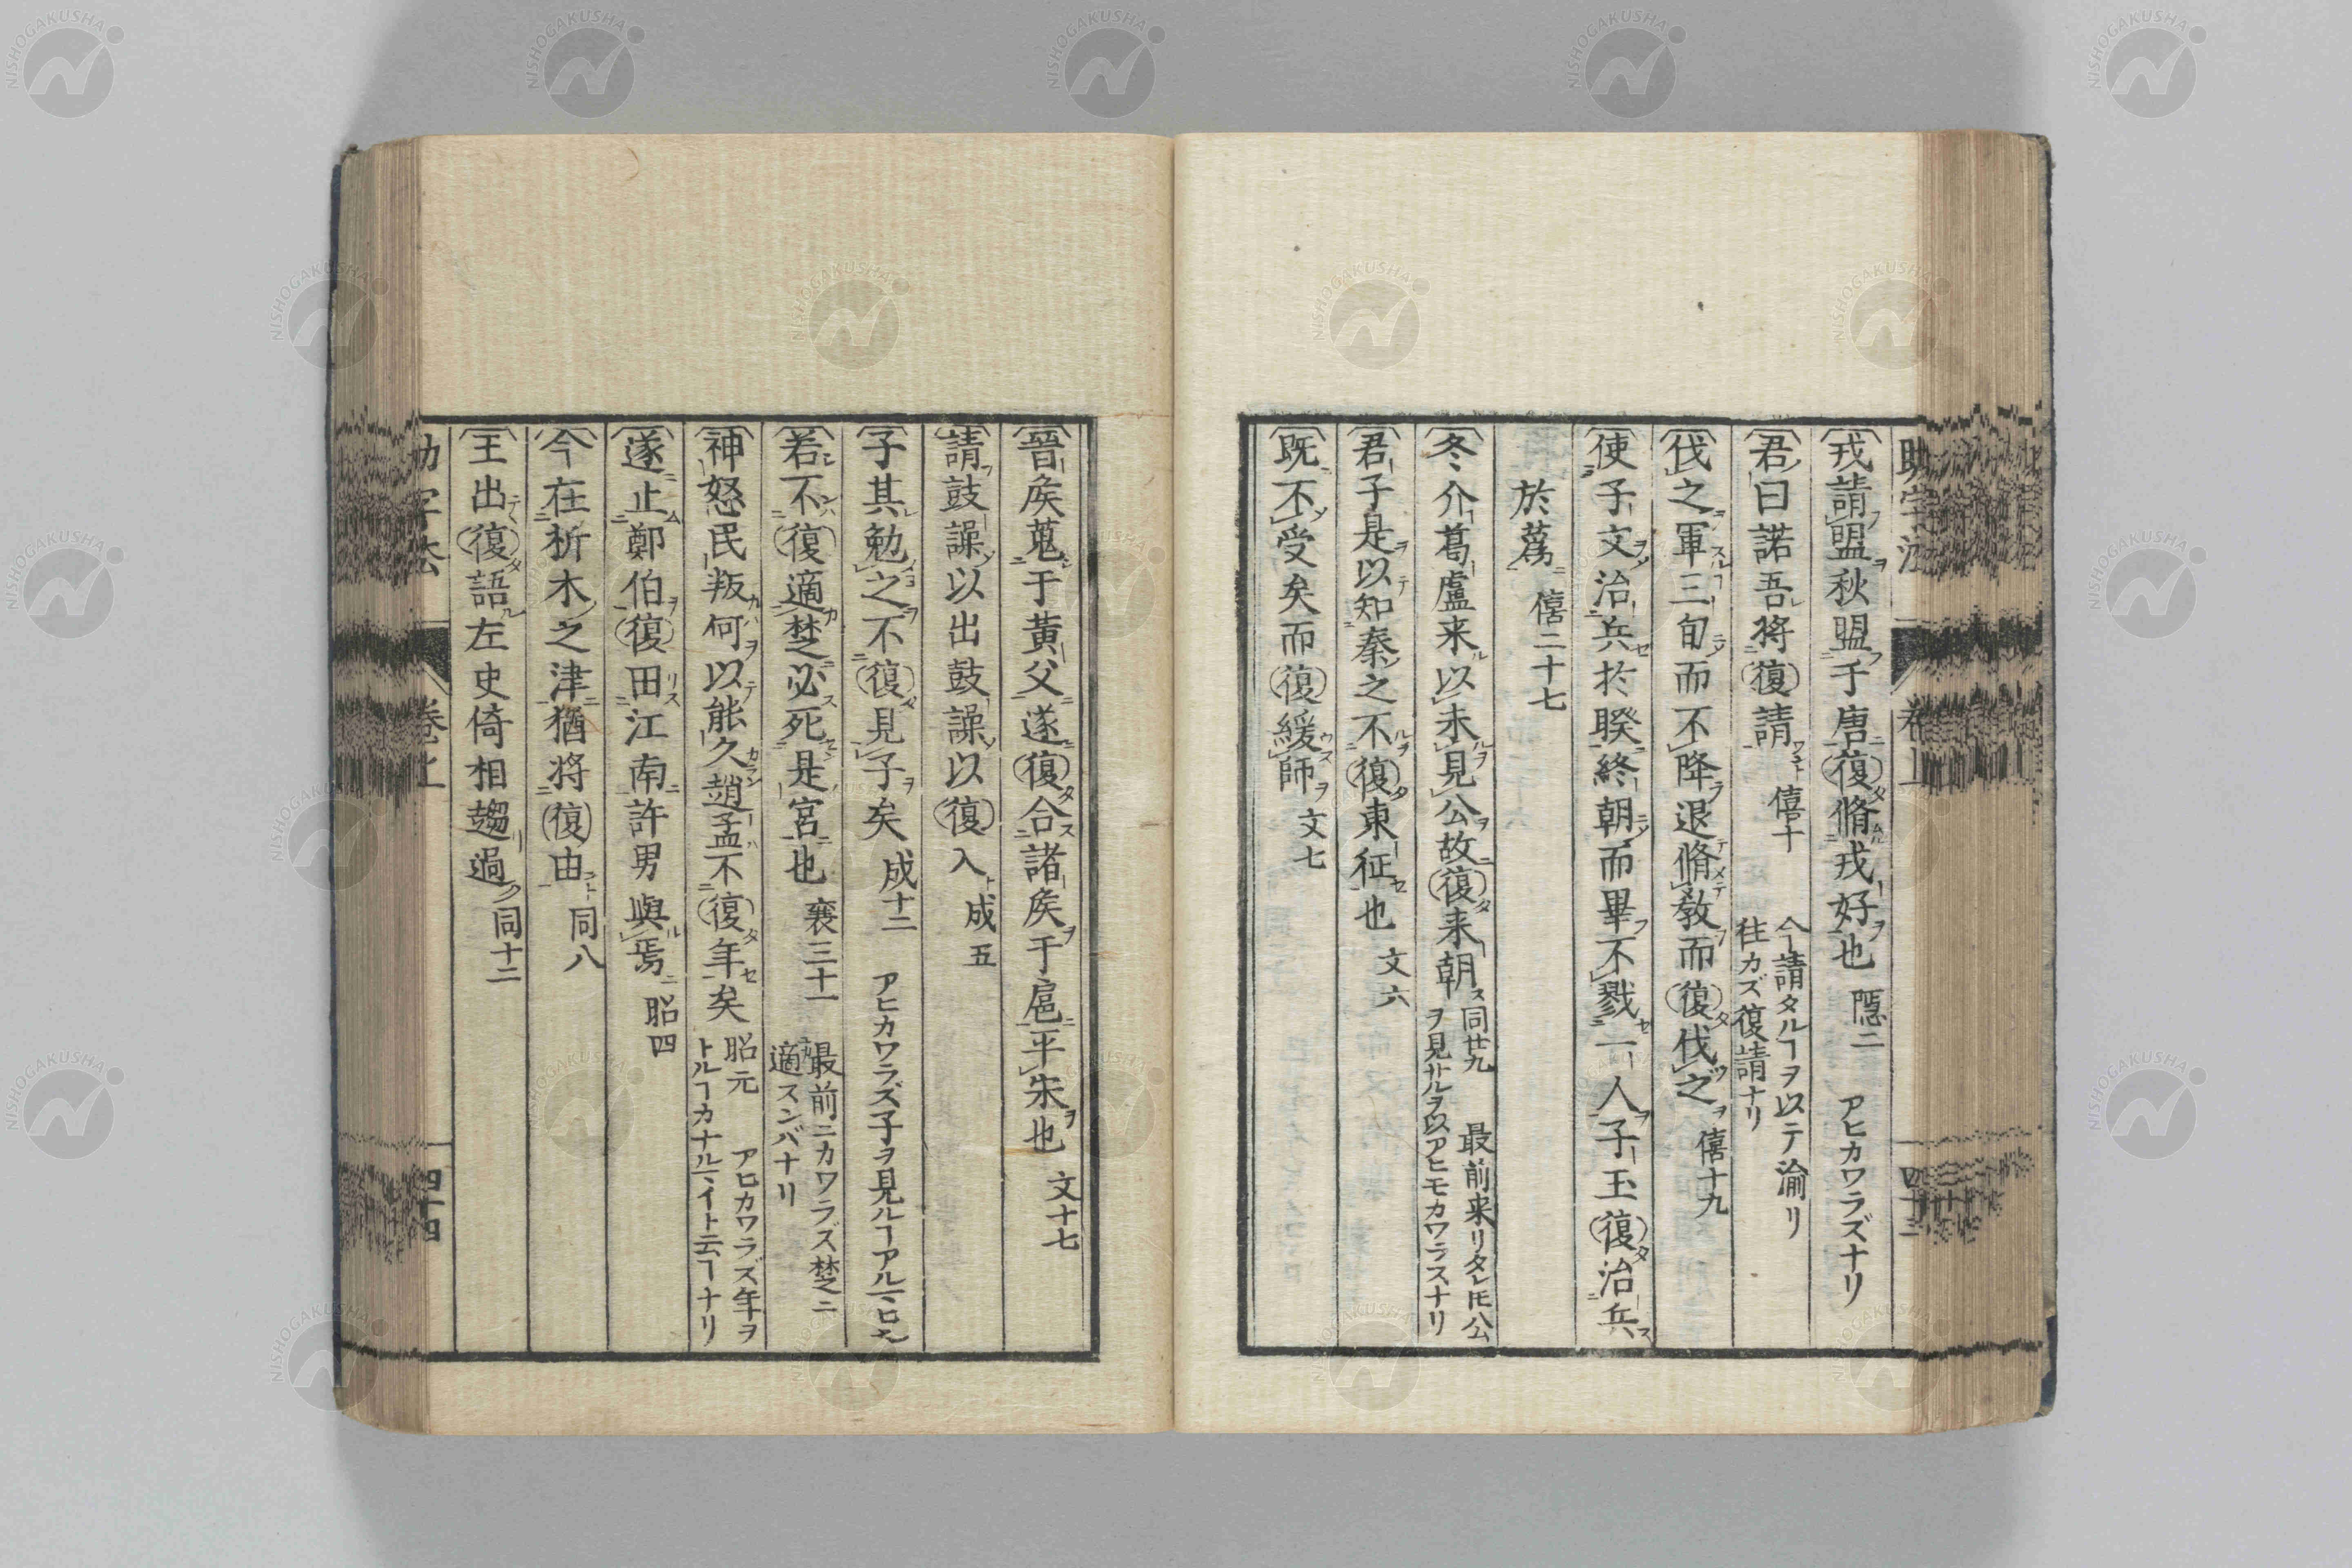 助字法 卷上 四十三
戎請盟秋盟于唐復脩戎好也 隱二 アヒカワラズナリ
君曰諾吾將復請 僖十 今請タルヿヲ以テ渝リ往カズ復請ナリ
伐之軍三旬而不降退脩教而復伐之 僖十九
使子文治兵於睽終朝而畢不戮一人子玉復治兵
於蔿 僖二十七
冬介葛盧来以未見公故復来朝 同廿九 最前来リタレ𪜈公ヲ見サルヲ以アヒモカワラスナリ
君子是以知秦之不復東征也 文六
既不受矣而復緩師 文七
晉矦蒐于黄父遂復合諸矦于扈平宋也 文十七
請鼓譟以出鼓譟以復入 成五
子其勉之不復見子矣 成十二 アヒカワラズ子ヲ見ルヿアル
若不復適楚必死是宮也 襄三十一 最前ニカワラズ楚ニ適スンバナリ
神怒民叛何以能久趙孟不復年矣 昭元 アヒカワラズ年ヲトルヿカナルイト云ヿナリ
遂止鄭伯復田江南許男與焉 昭四
今在析木之津猶将復由 同八
王出復語左史倚相趨過 同十二
助字法 卷上 四十四
NISHOGAKUSHA